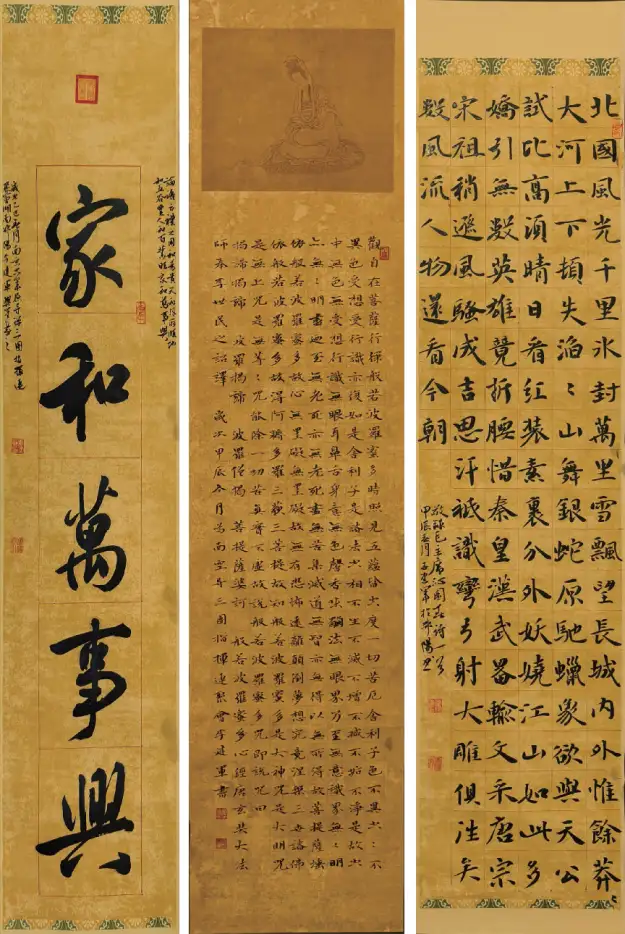 家和萬事興
觀自在菩薩行深般若波羅蜜多時照見五蘊皆空度一切苦厄舍利子色不異空〻不
異色受想行識亦復如是舍利子是諸法空相不生不滅不增不減不垢不淨是故空
中無色無受想行識無眼耳鼻舌身意無色聲香味觸法無眼界乃至無意識界無〻明
無〻明盡乃至無老死亦無老死盡無苦集滅道無智亦無得以無所得故菩提薩埵
依般若波羅蜜多故心無罣礙無罣礙故無有恐怖遠離顛倒夢想究竟涅槃三世諸佛
依般若波羅蜜多故得阿耨多羅三藐三菩提故知般若波羅蜜多是大神咒是大明咒
是無上咒是無等〻咒能除一切苦真實不虛故說般若波羅蜜多咒即說咒曰
揭諦揭諦 波羅揭諦 波羅僧揭 菩提薩婆訶 般若波羅蜜多心經唐玄奘大法
師奉李世民之詔譯 歲次甲辰冬月
北國風光千里冰封萬里雪飄望長城內外惟餘莽〻
大河上下頓失滔〻山舞銀蛇原馳蠟象欲與天公
試比高須晴日看紅裝素裹分外妖嬈江山如此多
嬌引無數英雄競折腰惜秦皇漢武畧輸文采唐宗
宋祖稍遜風騷成吉思汗祗識彎弓射大雕俱往矣
數風流人物還看今朝
敬錄毛主席沁園春詩一首